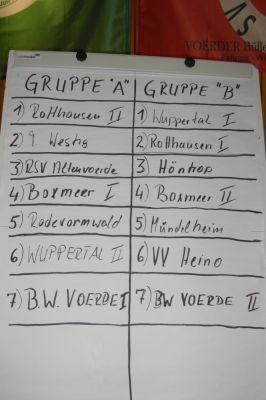 VOERDER
GRUPPE "A" GRUPPE "B"
1) Rotthausen II 1) Wuppertal I
2) 9. Westig 2) Rotthausen I
3) RSV Altenvoerde 3) Höntrop
4) Boxmeer I 4) Boxmeer II
5) Radevormwald 5) Mündelheim
6) WUPPERTAL II 6) VV Heino
7) B.W. VOERDE I 7) BW VOERDE II